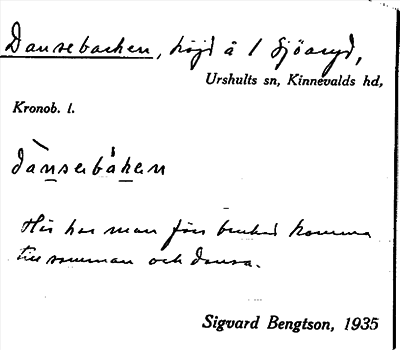 Dansebacken, höjd å 1 Sjöaryd,
Urshults sn, Kinnevalds hd,
Kronob. l.
dànsabákan
Här har man förr brukat komma
till samman och dansa.
Sigvard Bengtson, 1935